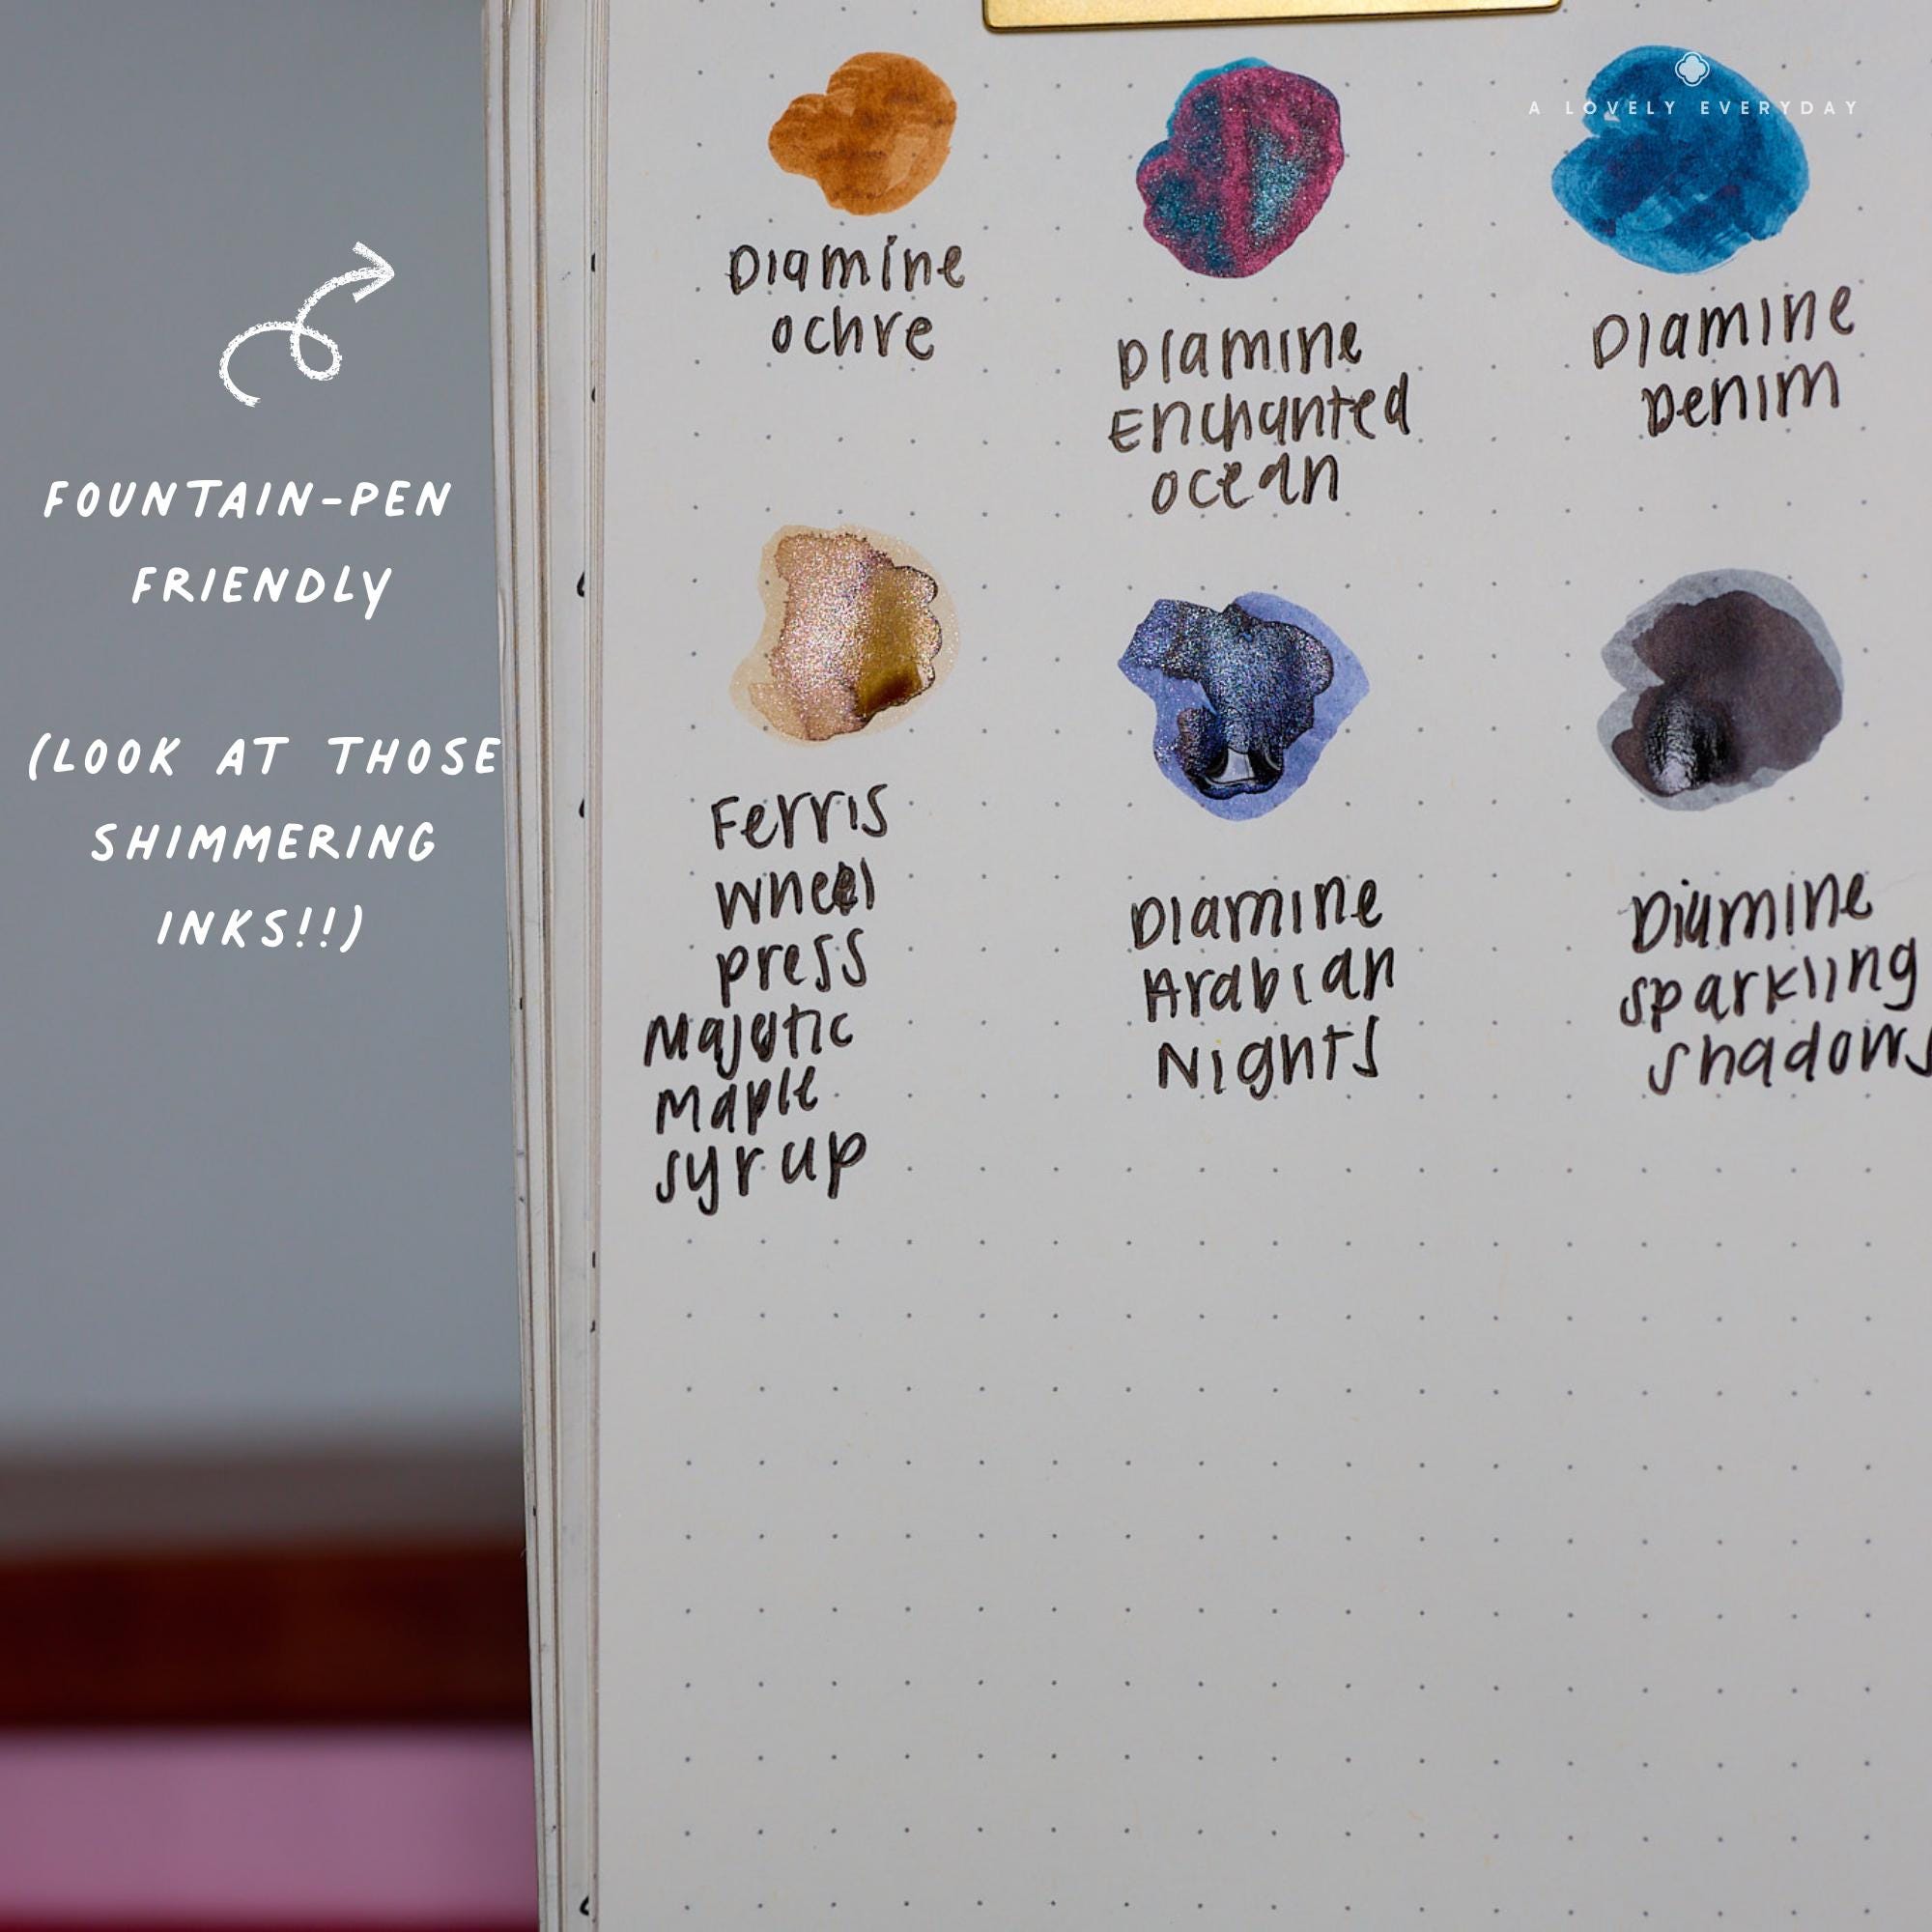 A LOVELY EVERYDAY
Diamine
ochre
Diamine
Enchanted
ocean
Diamine
Denim
FOUNTAIN-PEN
FRIENDLY
(LOOK AT THOSE
SHIMMERING
INKS!!)
Ferris
wheel
press
Majestic
Maple
syrup
Diamine
Arabian
Nights
Diamine
sparkling
shadows